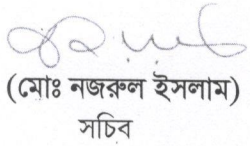 (মোঃ নজরুল ইসলাম)
সচিব